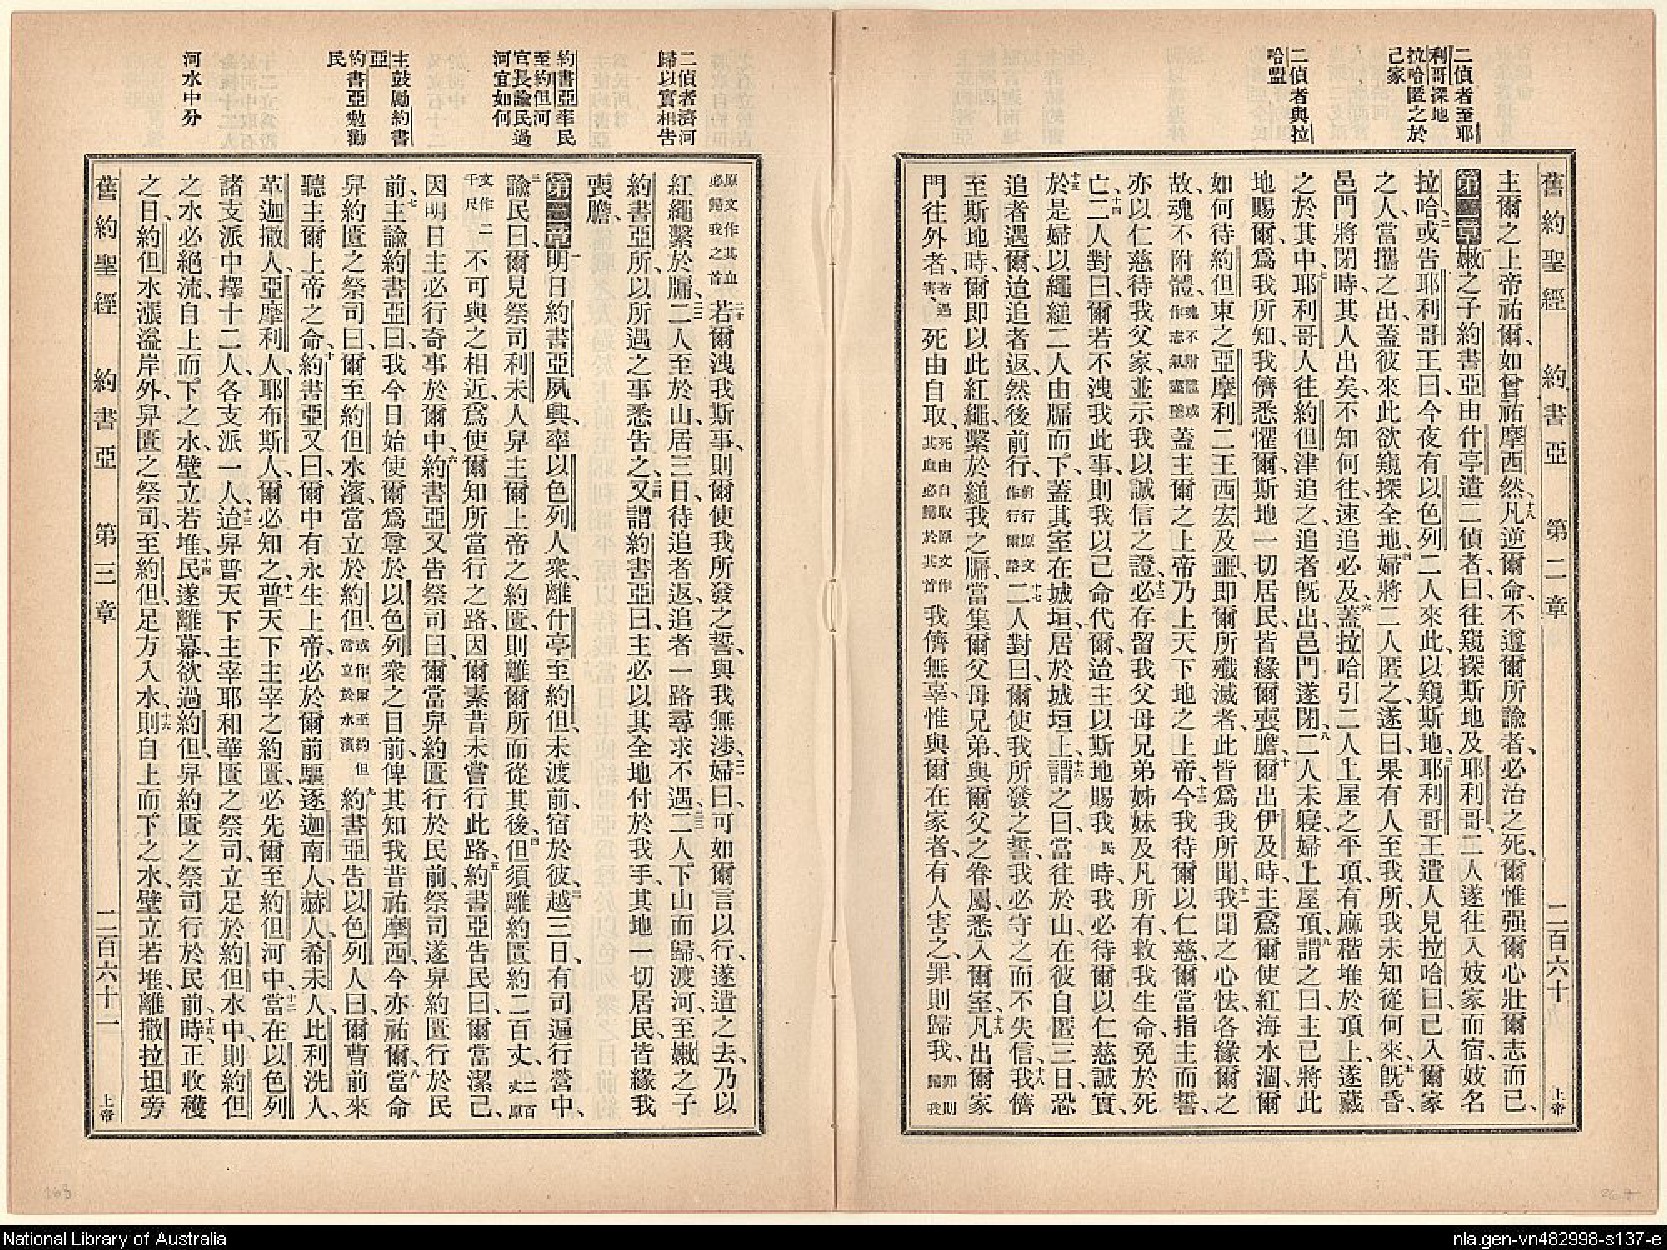 二偵者至耶
利哥探地
拉哈匿之於
己家
二偵者與拉
哈盟
舊約聖經 約書亞 第二章 二百六十 上帝
主爾之上帝祐爾、如曾祐摩西然、十八凡逆爾命、不遵爾所諭者、必治之死、爾惟强爾心壯爾志而已、
第二章 一嫩之子約書亞由什亭遣二偵者曰、往窺探斯地及耶利哥、二人遂往入妓家而宿、妓名
拉哈、二或告耶利哥王曰、今夜有以色列二人來此、以窺斯地、三耶利哥王遣人見拉哈曰、已入爾家
之人、當攜之出、蓋彼來此欲窺探全地、四婦將二人匿之、遂曰、果有人至我所、我未知從何來、五旣昏、
邑門將閉時、其人出矣、不知何往、速追必及、六蓋拉哈引二人上屋之平頂、有麻稭堆於頂上、遂藏
之於其中、七耶利哥人往約但津追之、追者旣出、邑門遂閉、八二人未寢、婦上屋頂、九謂之曰、主已將此
地賜爾、爲我所知、我儕悉懼爾、斯地一切居民、皆緣爾喪膽、十爾出伊及時、主爲爾使紅海水涸、爾
如何待約但東之亞摩利二王西宏及噩、卽爾所殲滅者、此皆爲我所聞、十一我聞之心怯、各緣爾之
故、魂不附體、魂不附體或作志氣靡墮蓋主爾之上帝、乃上天下地之上帝、十二今我待爾以仁慈、爾當指主而誓、
亦以仁慈待我父家、並示我以誠信之證、十三必存留我父母兄弟姊妹及凡所有、救我生命、免於死
亡、十四二人對曰、爾若不洩我此事、則我以己命代爾、迨主以斯地賜我民時、我必待爾以仁慈誠實、
十五於是婦以繩縋二人由牖而下、蓋其室在城垣、居於城垣上、十六謂之曰、當往於山、在彼自匿三日、恐
追者遇爾、迨追者返、然後前行、前行原文作行爾路十七二人對曰、爾使我所發之誓、我必守之而不失信、十八我儕
至斯地時、爾卽以此紅繩、繫於縋我之牖、當集爾父母兄弟、與爾父之眷屬悉入爾室、十九凡出爾家
門往外者、若遇害、死由自取、死由自取原文作其血必歸於其首我儕無辜、惟與爾在家者、有人害之、罪則歸我、罪則歸我
二偵者濟河
歸以實相告
約書亞率民
至約但河
官長諭民過
河宜如何
主鼓勵約書
亞
約書亞勉勸
民
河水中分
原文作其血必歸我之首二十若爾洩我斯事、則爾使我所發之誓、與我無涉、二一婦曰、可如爾言以行、遂遣之去、乃以
紅繩繫於牖、二二二人至於山、居三日、待追者返、追者一路尋求不遇、二三二人下山而歸、渡河、至嫩之子
約書亞所、以所遇之事悉告之、二四又謂約書亞曰、主必以其全地付於我手、其地一切居民、皆緣我
喪膽、
第三章 一明日約書亞夙興、率以色列人衆、離什亭至約但、未渡前、宿於彼、二越三日、有司遍行營中、
三諭民曰、爾見祭司利未人舁主爾上帝之約匱、則離爾所而從其後、四但須離約匱約二百丈、二百丈原
文作二千尺不可與之相近、爲使爾知所當行之路、因爾素昔未嘗行此路、五約書亞告民曰、爾當潔己、
因明日主必行奇事於爾中、六約書亞又告祭司曰、爾當舁約匱行於民前、祭司遂舁約匱行於民
前、七主諭約書亞曰、我今日始使爾爲尊於以色列衆之目前、俾其知我昔祐摩西、今亦祐爾、八當命
舁約匱之祭司曰、爾至約但水濱、當立於約但、或作爾至約但當立於水濱九約書亞告以色列人曰、爾曹前來
聽主爾上帝之命、十約書亞又曰、爾中有永生上帝、必於爾前驅逐迦南人、赫人、希未人、比利洗人、
革迦撒人、亞摩利人、耶布斯人、爾必知之、十一普天下主宰之約匱、必先爾至約但河中、十二當在以色列
諸支派中擇十二人、各支派一人、十三迨舁普天下主宰耶和華匱之祭司、立足於約但水中、則約但
之水必絕流、自上而下之水、壁立若堆、十四民遂離幕、欲過約但、舁約匱之祭司行於民前、十五時正收穫
之日、約但水漲溢岸外、舁匱之祭司至約但、足方入水、十六則自上而下之水、壁立若堆、離撒拉坦旁
舊約聖經 約書亞 第三章 二百六十一 上帝
National Library of Australia
nla.gen-vn482998-s137-e